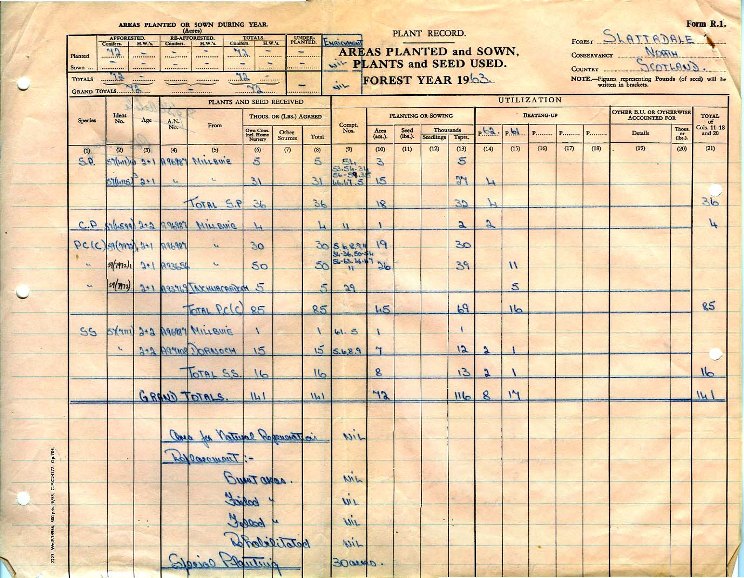 AREAS PLANTED OR SOWN DURING YEAR. (Acres)
Form R.1.
PLANT RECORD.
AREAS PLANTED AND SOWN, PLANTS AND SEED USED.
FOREST YEAR 1963
FOREST SLATTADALE
CONSERVANCY NORTH
COUNTRY SCOTLAND.
NOTE.—Figures representing Pounds (of seed) will be written in brackets.
AFFORESTED. RE-AFFORESTED. TOTALS UNDER-PLANTED.
Conifer. H.W's. Conifer. H.W's. Conifer. H.W's.
Planted 72 72
Sown ... NIL
TOTALS 72 72
GRAND TOTALS 72 72 NIL
PLANTS AND SEED RECEIVED UTILIZATION
Species Ident. No. Age A.N. No. From THOUS. OR (LBS.) AGREED Compt. Nos. PLANTING OR SOWING BEATING-UP OTHER B.U. OR OTHERWISE ACCOUNTED FOR TOTAL of Cols. 11-18 and 20
Own Cons. incl. Home Nursery Other Sources Total Area (acs.) Seed (lbs.) Thousands Seedlings Trpts. P.62 P.61 P. P. P. P. Details Thous. or (lbs.)
(1) (2) (3) (4) (5) (6) (7) (8) (9) (10) (11) (12) (13) (14) (15) (16) (17) (18) (19) (20) (21)
S.P. 2+1 MILLBUIE 5 5 51. 3 5
2+1 " " 31 31 15 27 4
TOTAL S.P. 36 36 18 32 4 36
C.P. 2+2 MILLBUIE 4 4 11 1 2 2 4
PC(C) 2+1 " 30 30 5.6.8.9.4 19 30
" 2+1 " 50 50 11 26 39 11
" 2+1 5 5 29 5
TOTAL PC(C) 85 85 45 69 16 85
SS 2+2 MILLBUIE 1 1 61.5 1 1
" 2+2 DORNOCH 15 15 5.6.8.9 7 12 2 1
TOTAL S.S. 16 16 8 13 2 1 16
GRAND TOTALS. 141 141 72 116 8 17 141
Area for Natural Regeneration NIL
Replacement:-
Burnt areas. NIL
Failed " NIL
Felled " NIL
Rehabilitated NIL
Special Planting 30 acres.